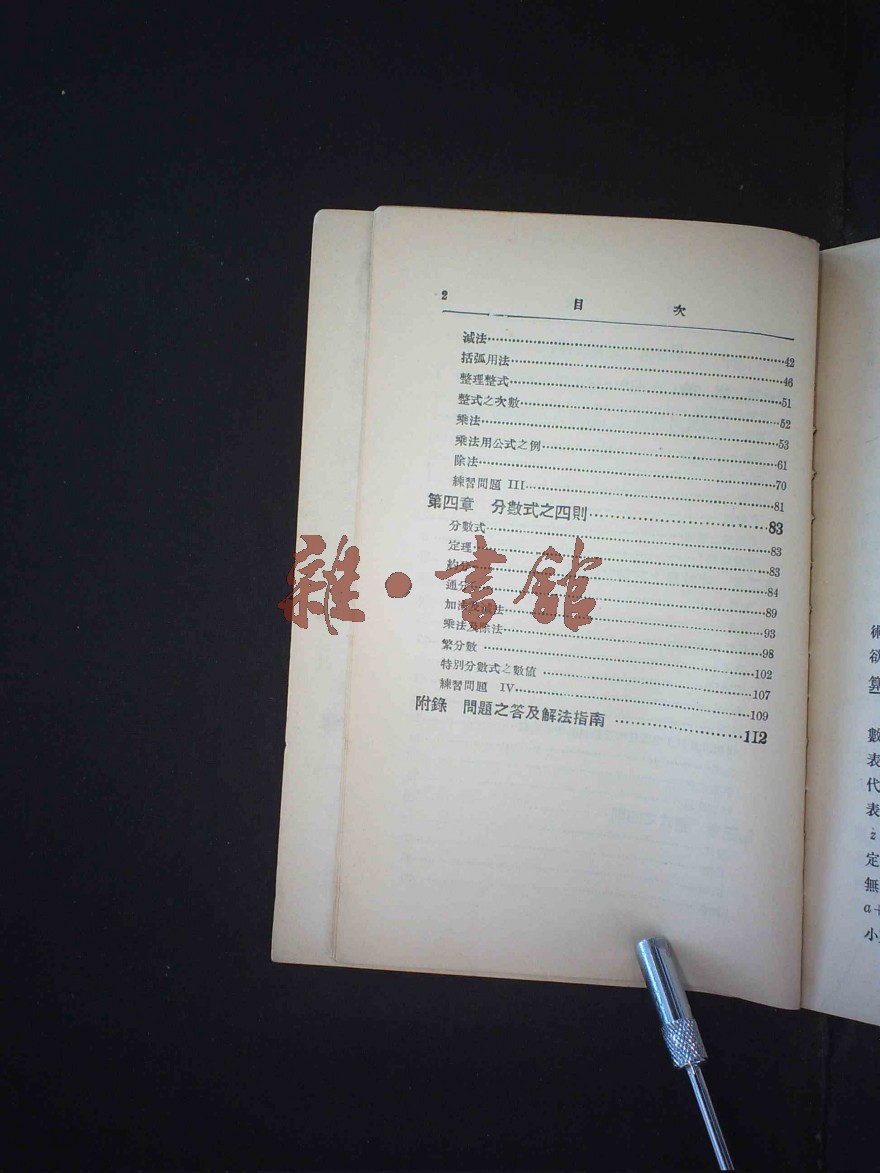 2 目 次
減法……42
括弧用法……46
整理整式……51
整式之次數……52
乘法……53
乘法用公式之例……61
除法……70
練習問題 III……81
第四章 分數式之四則……83
分數式……83
定理……83
約……84
通分……89
加法及減法……93
乘法及除法……98
繁分數……102
特別分數式之數值……107
練習問題 IV……109
附錄 問題之答及解法指南……112
雜·書館
術
欲
算
數
表
代
表
z
定
無
a+
小